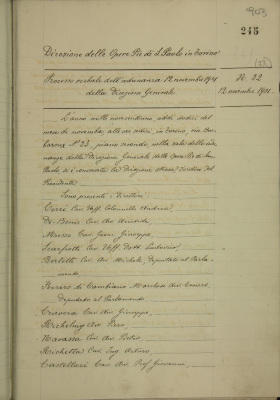 903
245
Direzione delle Opere Pie di S. Paolo in Torino
Processo verbale dell'adunanza 12 novembre 1901
della Direzione Generale
N. 22
12 novembre 1901.
L'anno mille novecentouno, addì dodici del
mese di novembre, alle ore sedici, in Torino, via
N. 23, piano secondo, nella sala delle
della Direzione Generale delle Opere Pie di San
Paolo si è convocata la Direzione stessa d'ordine del
Presidente.
Sono presenti i Direttori,
Cerri Cav. Uff. Colonnello Andrea,
De-Benis Cav. Avv. Aristide,
Musso Cav. Giuseppe,
Scarfiotti Cav. Uff. Dott. Lodovico,
Bertetti Cav. Avv. Michele, Deputato al Parla-
mento,
Ferrero di Cambiano Marchese Avv. Cesare,
Deputato al Parlamento
Cravero Cav. Avv. Giuseppe,
Avv. Piero,
Navassa Cav. Avv. Pietro
Ricchetta Cav. Ing. Arturo,
Castellari Cav. Avv. Prof. Giovanni,